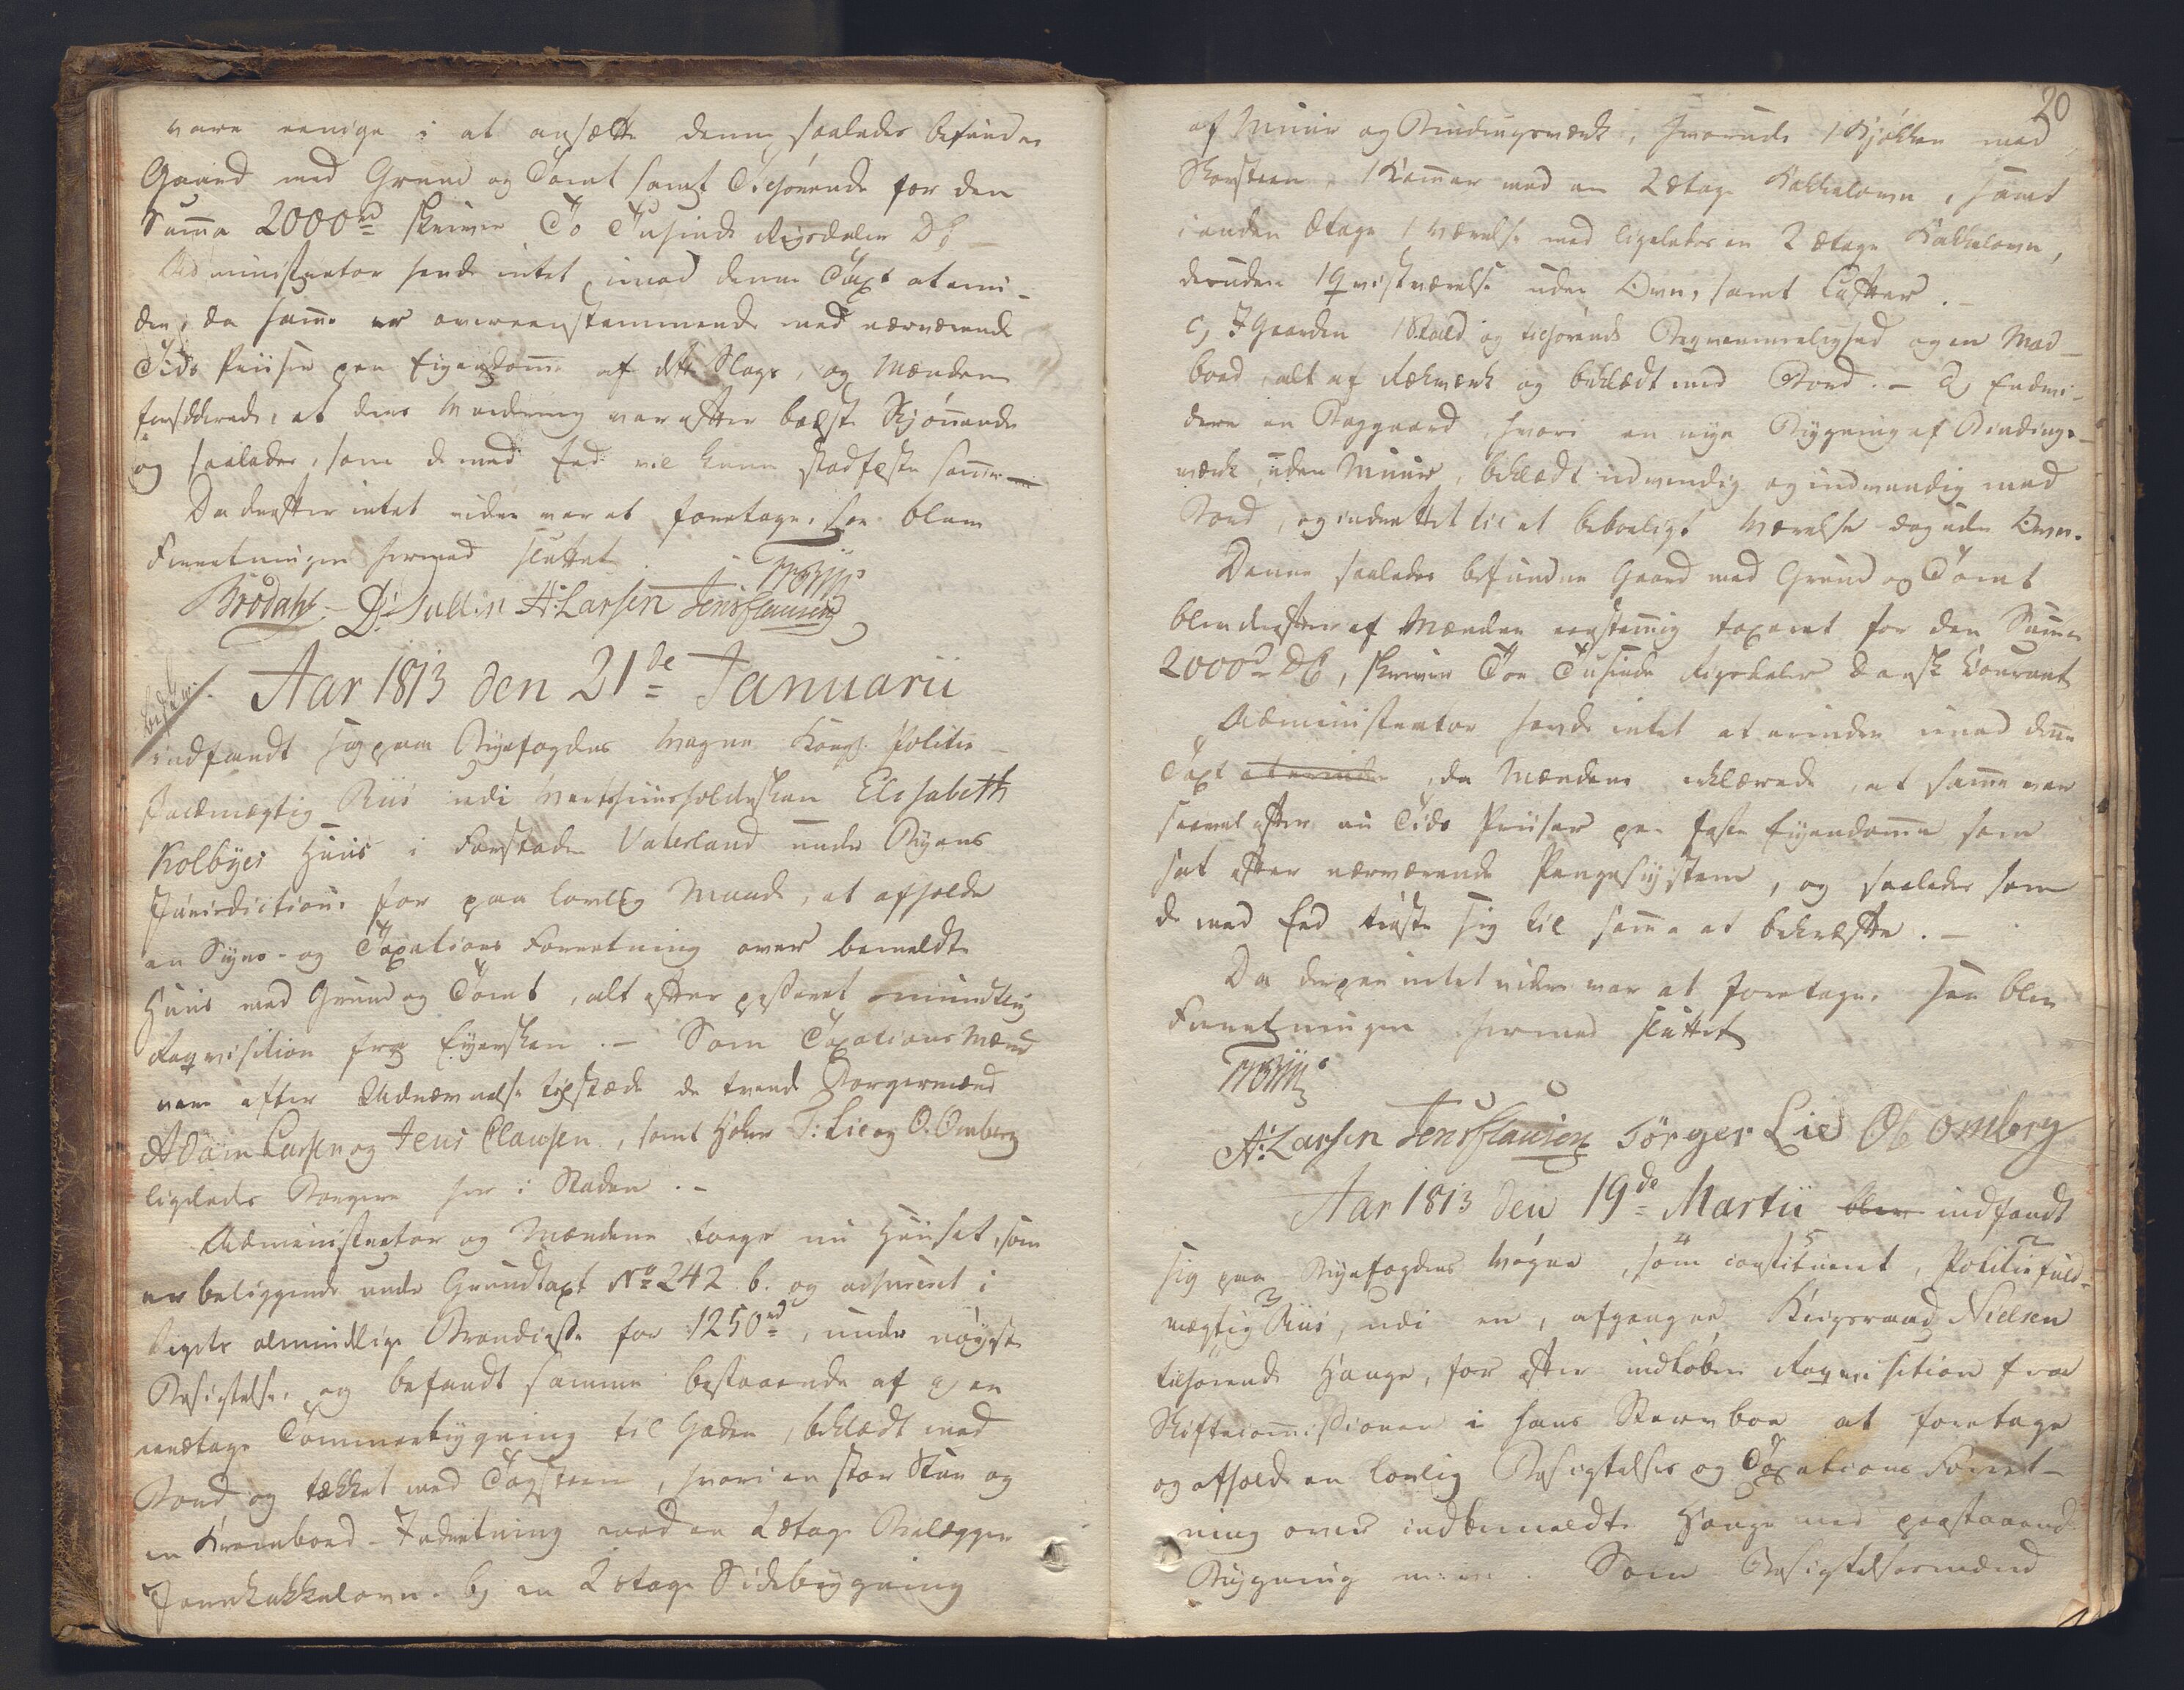 vare eenige i at ansætte denne saaledes befundne
Gaard med Grund og Tomt samt Tilhörende for den
Summa 2000rd skriver To Tusinde Rigsdaler DC
Administrator havde intet imod denne Taxt at erin-
dre, da samme er overeenstemmende med nærværende
Tids Priiser paa Eigendomme af dette Slags, og Mændene
forsikkrede, at deres Vurdering var efter bæste Skjönnende
og saaledes, som de med Eed vil kunne stadfæste samme
Da derefter intet videre var at foretage, saa blev
Forretningen hermed sluttet
Brodahl D. Sullin A: Larsen Jens Clausen
Aar 1813 den 21de Januarii
indfandt sig paa Byefogdens Vegne Kongl. Politie
Fuldmægtig Riis udi Vertshuusholdersken Elisabeth
Kolbyes Huus i Forstaden Vaterland under Byens
Jurisdiction, for paa lovlig Maade, at afholde
en Syns- og Taxations Forretning over bemeldte
Huus med Grund og Tomt, alt efter passeret mundtlig
Reqvisition fra Eyersken. – Som Taxations Mænd
vare efter Udnævnelse tilstæde de tvende Borgermænd
Adam Larsen og Jens Clausen, samt T: Lie og O. Omberg
ligeledes Borgere her i Staden. –
Administrator og Mændene toge nu Huuset, som
er beliggende under Grundtaxt No 242 b. og assureret i
Rigets almindelige Brandcasse for 1250rd, under nöyeste
Besigtelse, og befandt samme bestaaende af a) en
eenetages Tömmerbygning til Gaden, beklædt med
Bord og tækket med Tagsteen, hvori en stor Stue og
en Krambod-Indretning med en 2 etages Bilægger
Jernkakkelovn. b) en 2 etages Sidebygning
20
af Muur og Bindingsværk, hvorudi 1 Kjökken med
Skorsteen, 1 Kammer med en 2 Etages Kakkelovn, samt
i anden Etage 1 Værelse med ligeledes en 2 Etages Kakkelovn,
desuden 1 Qvistværelse uden Ovn, samt Lofter. –
c) I Gaarden 1 Stald og tilhörende Beqvemmelighed og en Mad-
bod, alt af Rekværk og beklædt med Bord. – d) Endvi-
dere en Baggaard, hvori en nye Bygning af Bindings-
værk, uden Muur, beklædt udvendig og indvendig med
Bord, og indrettet til et beboeligt Værelse dog uden Ovn.
Denne saaledes befundne Gaard med Grund og Tomt
blev derefter af Mændene eenstemmig taxeret for den Summa
2000rd DC, skriver Toe Tusinde Rigsdaler Dansk Courant
Administrator havde intet at erindre imod denne
Taxt at erindre, da Mændene erklærede, at samme var
saavel efter nu Tids Priiser paa faste Eyendomme som
sat efter nærværende Pengesystem, og saaledes som
de med Eed tröste sig til samme at bekræfte. –
Da derpaa intet videre var at foretage, saa blev
Forretningen hermed sluttet
A: Larsen Jens Clausen Törger Lie Ol Omberg
Aar 1813 den 19de Martii blev indfandt
sig paa Byefogdens Vegne, som constitueret, Politiefuld-
mægtig Riis, udi en, afgangne Krigsraad Nielsen
tilhörende Hauge, for efter indkoben Reqvisition fra
Skiftecommissionen i hans Stervboe at foretage
og afholde en lovlig Besigtelses og Taxations Forret-
ning over indbemeldte Hauge med paastaaende
Bygning m: v: . Som Besigtelsesmænd